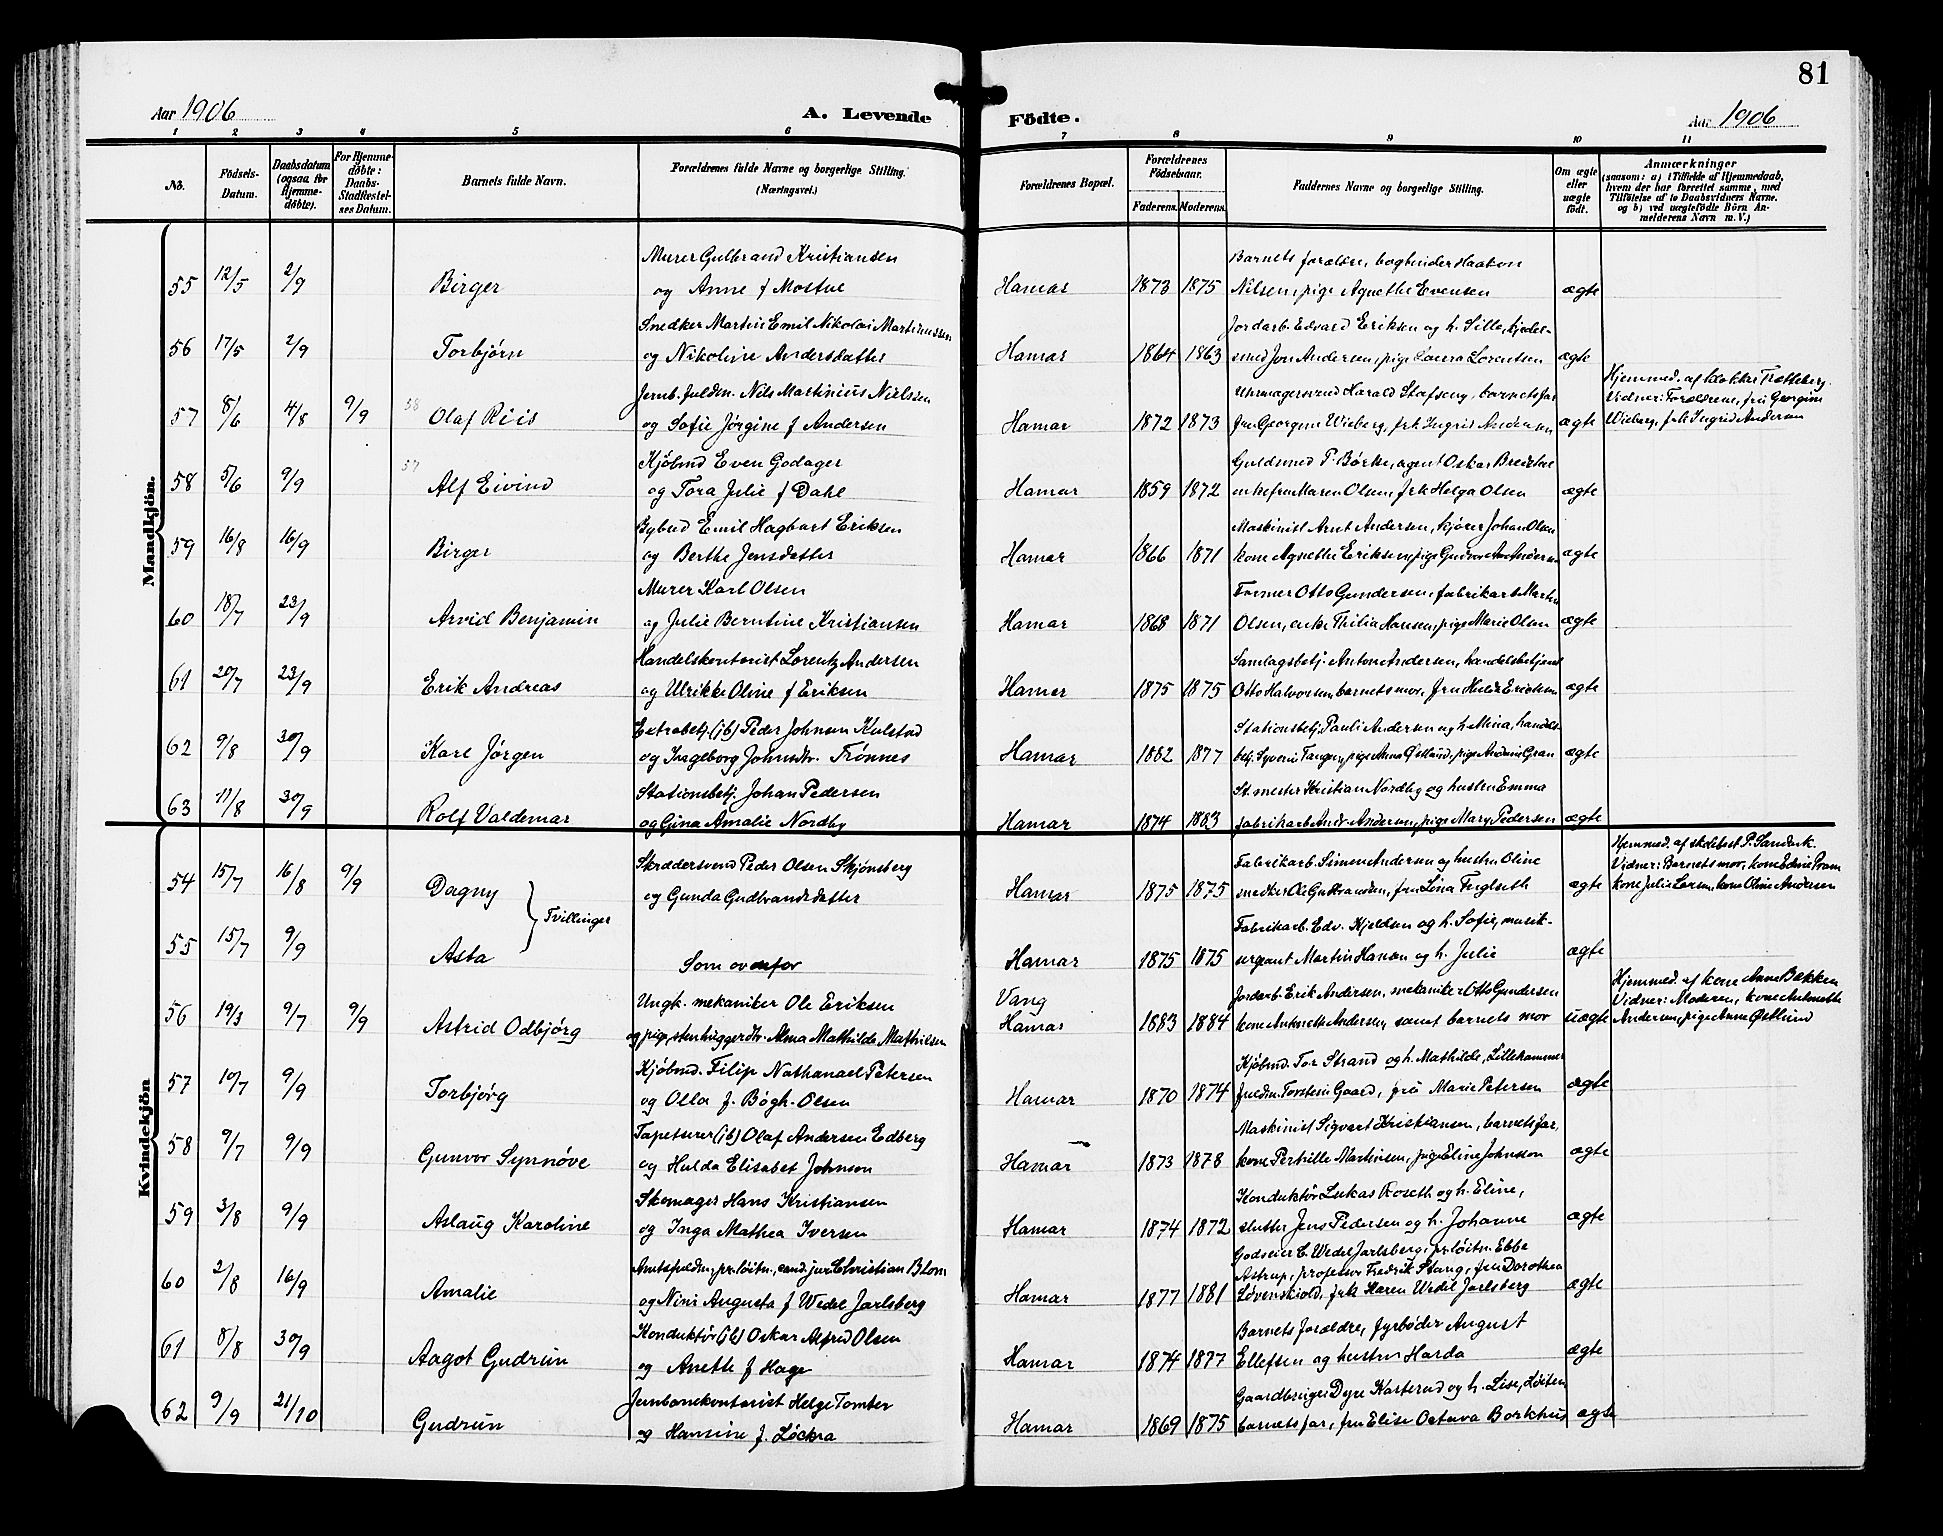 81
Aar 1906
A. Levende
Födte.
Aar 1906
1 2 3 4 5 6 7 8 9 10 11
No.
Födsels-Datum.
Daabsdatum (ogsaa for Hjemme-döbte).
For Hjemme-döbte: Daabs-Stadfæstel-ses Datum.
Barnets fulde Navn.
Forældrenes fulde Navne og borgerlige Stilling. (Næringsvei.)
Forældrenes Bopæl.
Forældrenes Födselsaar.
Faderens. Moderens.
Faddernes Navne og borgerlige Stilling.
Om ægte eller uægte födt.
Anmærkninger
(saasom: a) i Tilfælde af Hjemmedaab,
hvem der har forrettet samme, med
Tilföielse af to Daabsvidners Navne.
og b) ved uægtefödte Börn An-
melderens Navn m. V.)
Mandkjön.
Murer Gulbrand Kristiansen Barnets forældre, bogbinder Haakon
55 12/5 2/9 Birger og Anne f Mostue Hamar 1873 1875 Nilsen, pige Agnethe Evensen ægte
Snedker Martin Emil Nikolai Martinussen Jordarb. Edvard Eriksen og h. Sille, kjedel-
56 17/5 2/9 Torbjørn og Nikoline Andersdatter Hamar 1864 1863 smed Jon Andersen, pige Laura Lorentsen ægte
Jernb.fuldm. Nils Martinius Nielssen Uhrmagersvend Harald Stafseng, barnets far Hjemmed. af klokker Trætteberg.
Vidner: Forældrene, fru Georgine
57 8/6 4/8 9/9 58 Olaf Riis og Sofie Jørgine f Andersen Hamar 1872 1873 fru Georgine Wieberg, frk Ingrid Andersen ægte Wieberg, frk Ingrid Andersen
Kjøbmd Even Godager Guldsmed P. Børke, agent Oskar Bredahl
58 5/6 9/9 57 Alf Eivind og Tora Julie f Dahl Hamar 1859 1872 enkefru Maren Olsen, frk Helga Olsen ægte
Bybud Emil Hagbart Eriksen Maskinist Arnt Andersen, kjører Johan Olsen
59 16/8 16/9 Birger og Berthe Jensdatter Hamar 1866 1871 kone Agnethe Eriksen, pige Gudvor Andersen ægte
Murer Karl Olsen Former Otto Gundersen, fabrikarb Martin
60 18/7 23/9 Arvid Benjamin og Julie Berntine Kristiansen Hamar 1868 1871 Olsen, enke Thilia Hansen, pige Marie Olsen ægte
Handelskontorist Lorentz Andersen Samlagsbetj. Anton Andersen, handelsbetjent
61 20/7 23/9 Erik Andreas og Ulrikke Oline f Eriksen Hamar 1875 1875 Otto Halvorsen, barnets mor, fru Hulda Eriksen ægte
Extrabetj. (jb) Peder Johnsen Kulstad Stationsbetj. Pauli Andersen og h. Mina, handels-
62 9/8 30/9 Karl Jørgen og Ingeborg Johnsdtr. Trønnes Hamar 1882 1877 betj. Syverin Tangen, pige Anna Østlund, pige Andrine Gran ægte
Stationsbetj. Johan Pedersen St.mester Kristian Nordby og hustru Emma
63 11/8 30/9 Rolf Valdemar og Gina Amalie Nordby Hamar 1874 1883 fabrikarb Andr. Andersen, pige Mary Pedersen ægte
Kvindekjön
Skræddersvend Peder Olsen Skjønsberg Fabrikarb. Simen Andersen og hustru Oline Hjemmed. af skolebest P. Sandvik.
Vidner: Barnets mor, kone Edvine Pram
54 15/7 16/8 9/9 Dagny og Gunda Gudbrandsdatter Hamar 1875 1875 snedker Ole Gulbrandsen, fru Lina Fuglseth ægte kone Julie Larsen, kone Oline Andersen
Tvillinger
Fabrikarb. Edv. Kjeldsen og h. Sofie, musik-
55 15/7 9/9 Asta Som ovenfor Hamar 1875 1875 sergeant Martin Hansen og h. Julie ægte
Ungk. mekaniker Ole Eriksen Vang Jordarb. Erik Andersen, mekaniker Otto Gundersen Hjemmed. af kone Anne Bækken
Vidner: Moderen, kone Antonette
56 19/3 9/7 9/9 Astrid Odbjørg og pige, stenhuggerdtr. Alma Mathilde Mathisen Hamar 1883 1884 kone Antonette Andersen, samt barnets mor uægte Andersen, pige Anna Østlund
Kjøbmd. Filip Nathanael Petersen Kjøbmd. Tor Strand og h. Mathilde, Lillehammer
57 10/7 9/9 Torbjørg og Olla f. Bøgh-Olsen Hamar 1870 1874 fuldm. Torstein Gaard, frü Marie Petersen ægte
Tapetserer (jb) Olaf Andersen Edberg Maskinist Sigvart Kristiansen, barnets far,
58 9/7 9/9 Gunvor Synnøve og Hulda Elisabet Johnson Hamar 1873 1878 kone Pernille Martinsen, pige Eline Johnson ægte
Skomager Hans Kristiansen Konduktør Lukas Roseth og h. Eline,
59 3/8 9/9 Aslaug Karoline og Inga Mathea Iversen Hamar 1874 1872 slutter Jens Pedersen og h. Johanne ægte
Amtsfuldm., pr.løitn., cand. jur Christian Blom Godseier C. Wedel Jarlsberg, pr.løitn. Ebbe
Astrup, professor Fredrik Stang, fru Dorothea
60 2/8 16/9 Amalie og Nini Augusta f Wedel Jarlsberg Hamar 1877 1881 Løvenskiold, frk Karen Wedel Jarlsberg ægte
Konduktør (jb) Oskar Alfred Olsen Barnets forældre, fyrbøder August
61 8/8 30/9 Aagot Gudrun og Anette f Hage Hamar 1874 1877 Ellefsen og hustru Harda ægte
Jernbanekontorist Helge Tomter Gaardbruger Dyre Karterud og h. Lise, Løiten
62 9/9 21/10 Gudrun og Hansine f. Løckra Hamar 1869 1875 barnets far, fru Elise Octava Borkhus ægte